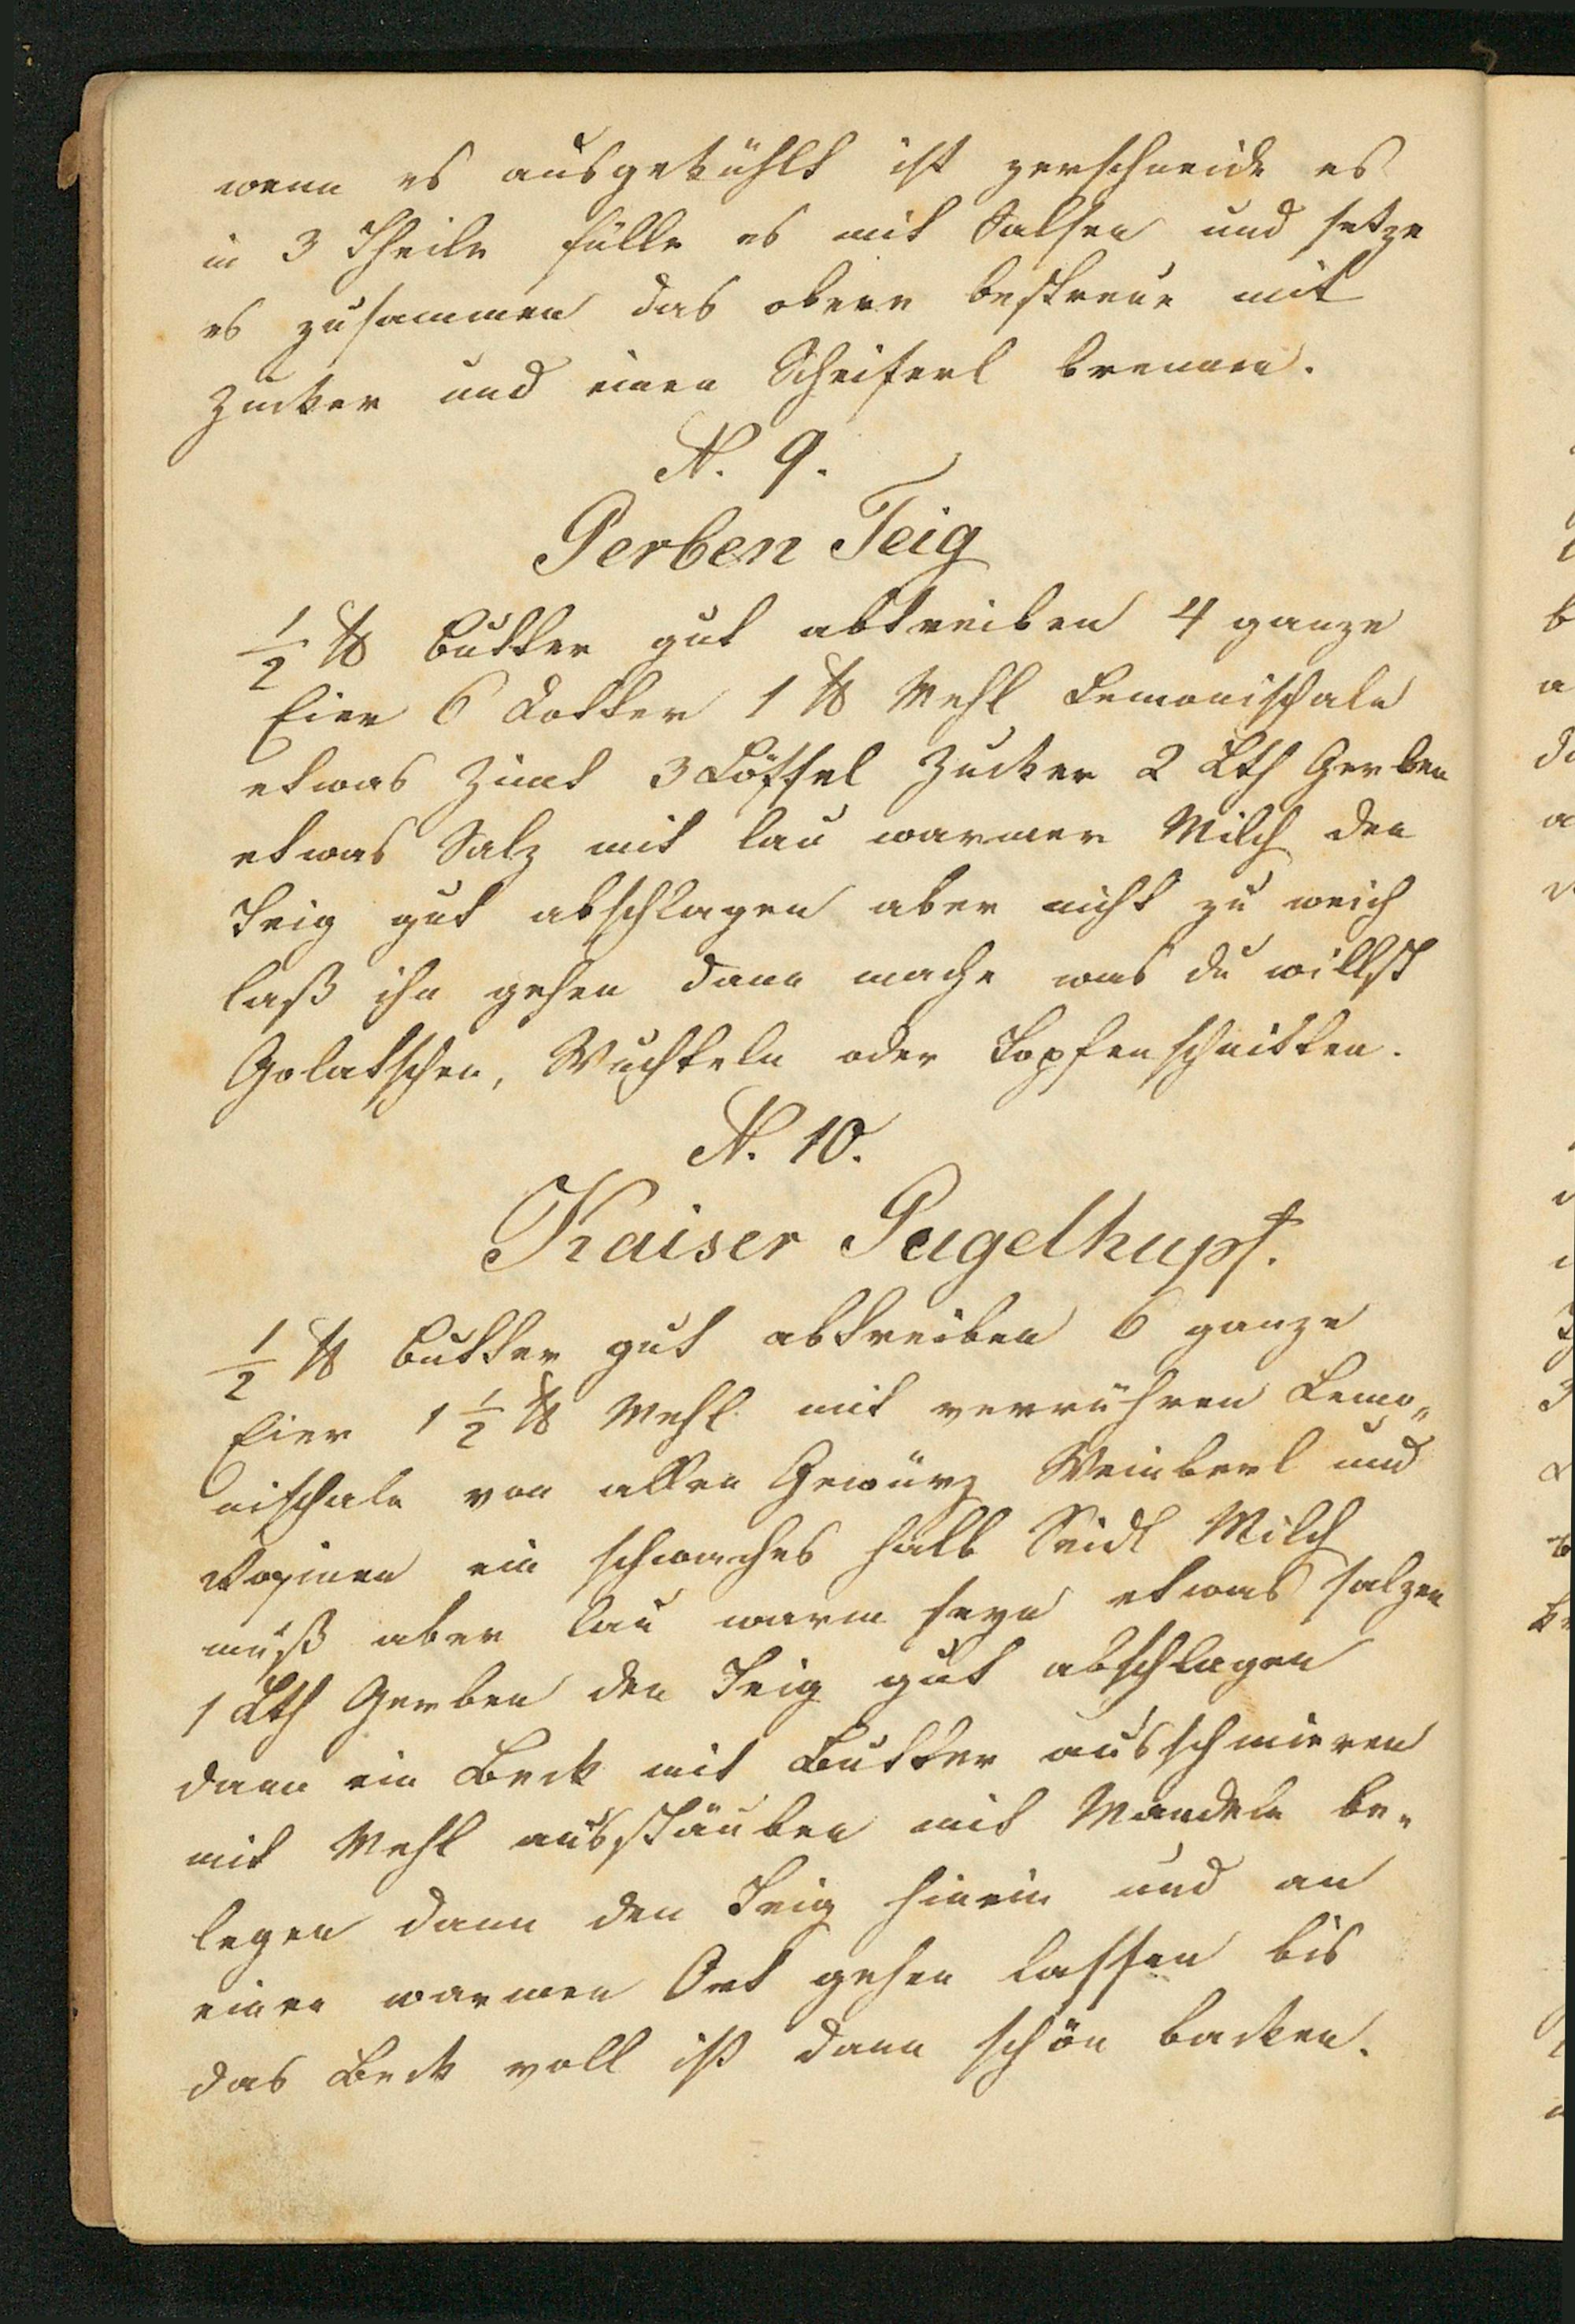 wenn es ausgekühlt ist zerschneide es
in 3 Theile fülle es mit Salsen und setze
es zusammen das obere bestreue mit
Zucker und einen Scheiferl brennen.
N. 9.
Gerben Teig
½ ℔ Butter gut abtreiben 4 ganze
Eier 6 Dotter 1 ℔ Mehl Lemonischale
etwas Zimt 3 Löffel Zucker 2 Lth Gerben
etwas Salz mit lau warmer Milch den
Teig gut abschlagen aber nicht zu weich
laß ihn gehen dann mache was du willst
Golatschen, Wuchteln oder Topfenschnitten.
N. 10.
Kaiser Gugelhupf.
½ ℔ Butter gut abtreiben 6 ganze
Eier 1½ ℔ Mehl mit verrühren Lemo„
nischale von allen Gewürz Weinberl und
Rosinen ein schwaches halb Seidl Milch
muß aber lau warm seyn etwas salzen
1 Lth Gerben den Teig gut abschlagen
dann ein Beck mit Butter ausschmieren
mit Mehl ausstäuben mit Mandeln be„
legen dann den Teig hinein und an
einen warmen Ort gehen lassen bis
das Beck voll ist dann schön backen.